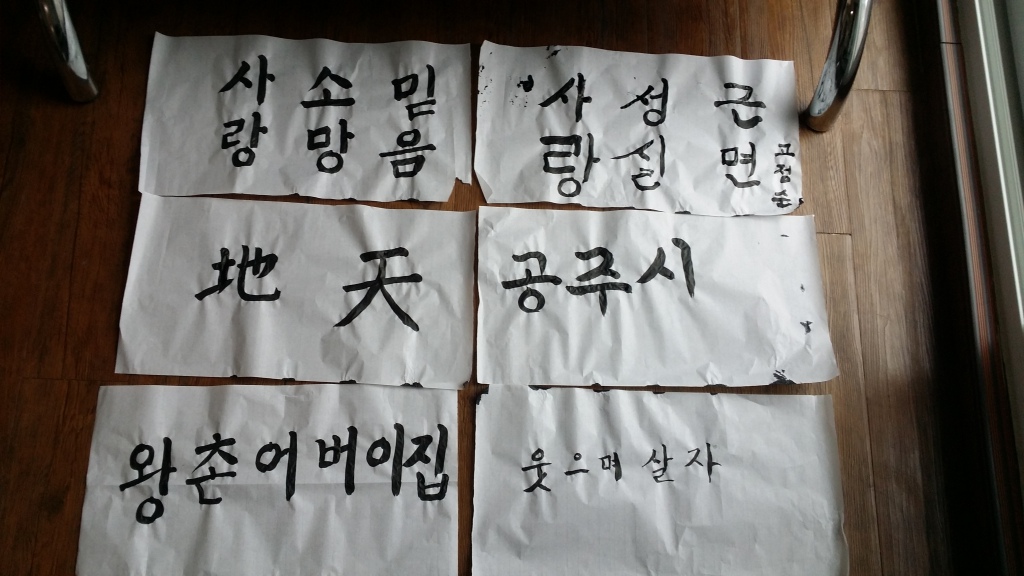 믿음
소망
사랑
근면
성실
사랑
고점순
天地
공주시
왕촌어버이집
웃으며살자